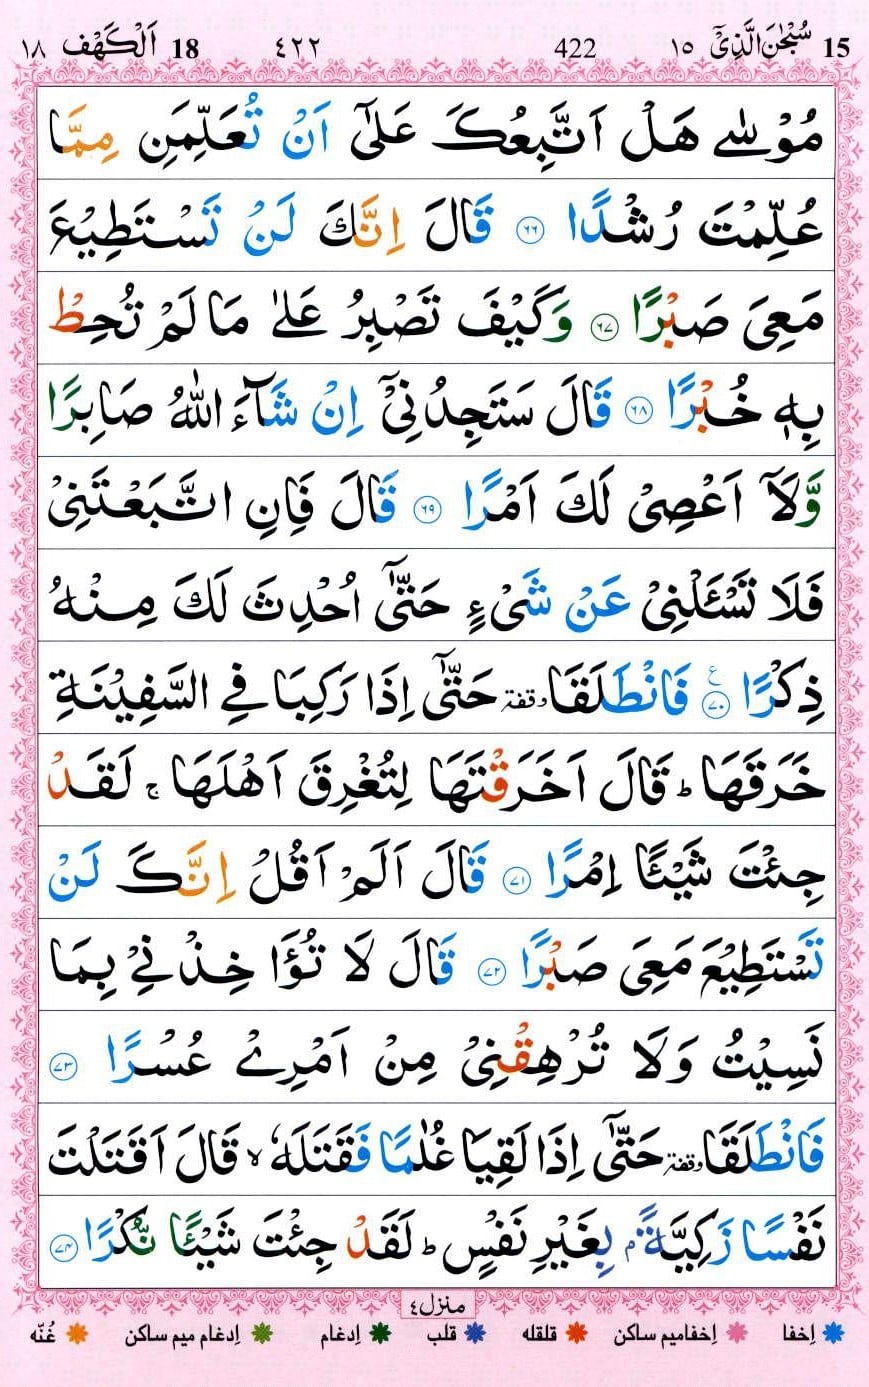 15 سُبْحٰنَ الَّذِيْٓ ١٥ 422 ٤٢٢ 18 اَلْكَهْف ١٨
مُوْسٰى هَلْ اَتَّبِعُكَ عَلٰٓى اَنْ تُعَلِّمَنِ مِمَّا
عُلِّمْتَ رُشْدًا ٦٦ قَالَ اِنَّكَ لَنْ تَسْتَطِيْعَ
مَعِيَ صَبْرًا ٦٧ وَكَيْفَ تَصْبِرُ عَلٰى مَا لَمْ تُحِطْ
بِهٖ خُبْرًا ٦٨ قَالَ سَتَجِدُنِيْٓ اِنْ شَآءَ اللّٰهُ صَابِرًا
وَّلَآ اَعْصِيْ لَكَ اَمْرًا ٦٩ قَالَ فَاِنِ اتَّبَعْتَنِيْ
فَلَا تَسْـَٔلْنِيْ عَنْ شَيْءٍ حَتّٰٓى اُحْدِثَ لَكَ مِنْهُ
ذِكْرًا ٧٠ ع فَانْطَلَقَا وقفة حَتّٰٓى اِذَا رَكِبَا فِي السَّفِيْنَةِ
خَرَقَهَا ؕ قَالَ اَخَرَقْتَهَا لِتُغْرِقَ اَهْلَهَا ۚ لَقَدْ
جِئْتَ شَيْـًٔا اِمْرًا ٧١ قَالَ اَلَمْ اَقُلْ اِنَّكَ لَنْ
تَسْتَطِيْعَ مَعِيَ صَبْرًا ٧٢ قَالَ لَا تُؤَاخِذْنِيْ بِمَا
نَسِيْتُ وَلَا تُرْهِقْنِيْ مِنْ اَمْرِيْ عُسْرًا ٧٣
فَانْطَلَقَا وقفة حَتّٰٓى اِذَا لَقِيَا غُلٰمًا فَقَتَلَهٗ ۙ قَالَ اَقَتَلْتَ
نَفْسًا زَكِيَّةًۢ بِغَيْرِ نَفْسٍ ؕ لَقَدْ جِئْتَ شَيْـًٔا نُّكْرًا ٧٤
منزل ٤
اِخفا اِخفامیم ساکن قلقله قلب اِدغام اِدغام میم ساکن غُنّه